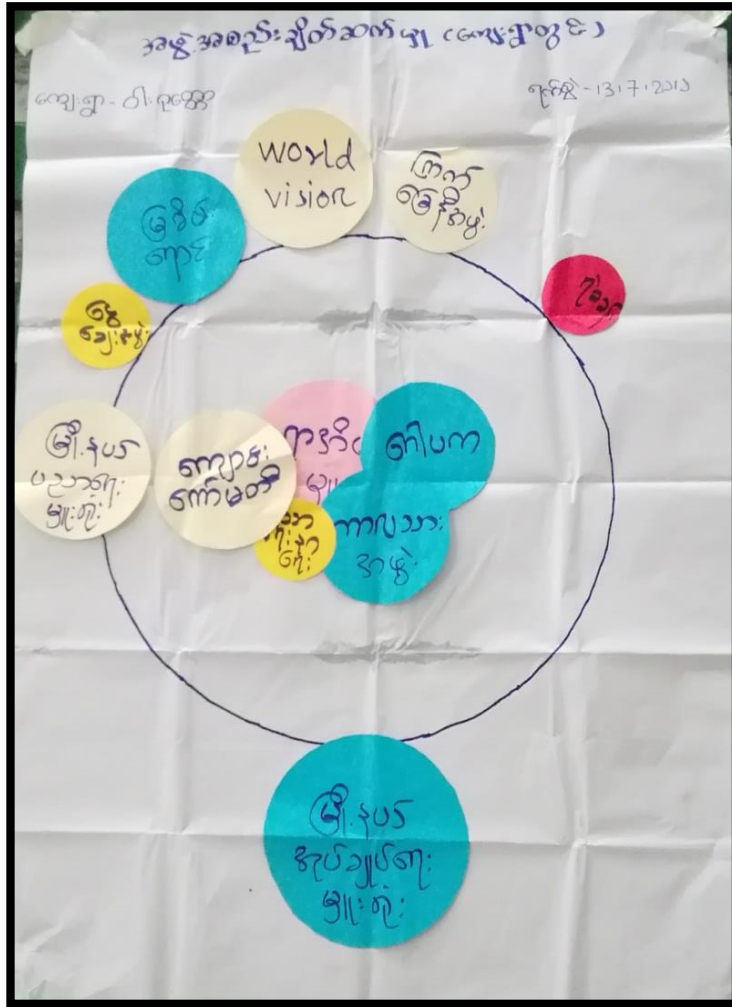 အဖွဲ့အစည်းချိတ်ဆက်မှု (ကျေးရွာတွင်း)
ကျေးရွာ -
ရက်စွဲ - 13.7.2019
World
vision
ကြက်
ခြေနီအဖွဲ့
မြစိမ်း
ရောင်
ငွေ
ချေးအဖွဲ့
ရဲစခန်း
မြို့နယ်
ပညာရေး
မှူးရုံး
ကျောင်း
ကော်မတီ
ကာလသား
အဖွဲ့
မြို့နယ်
အုပ်ချုပ်ရေး
မှူးရုံး